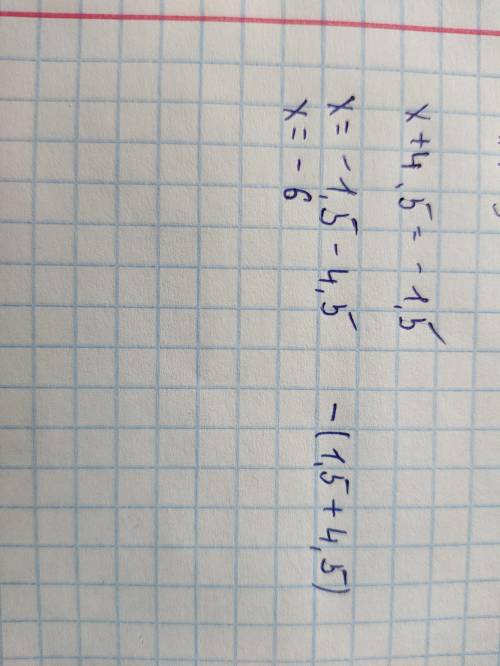 x + 4,5 = -1,5
x = -1,5 - 4,5 -(1,5 + 4,5)
x = -6